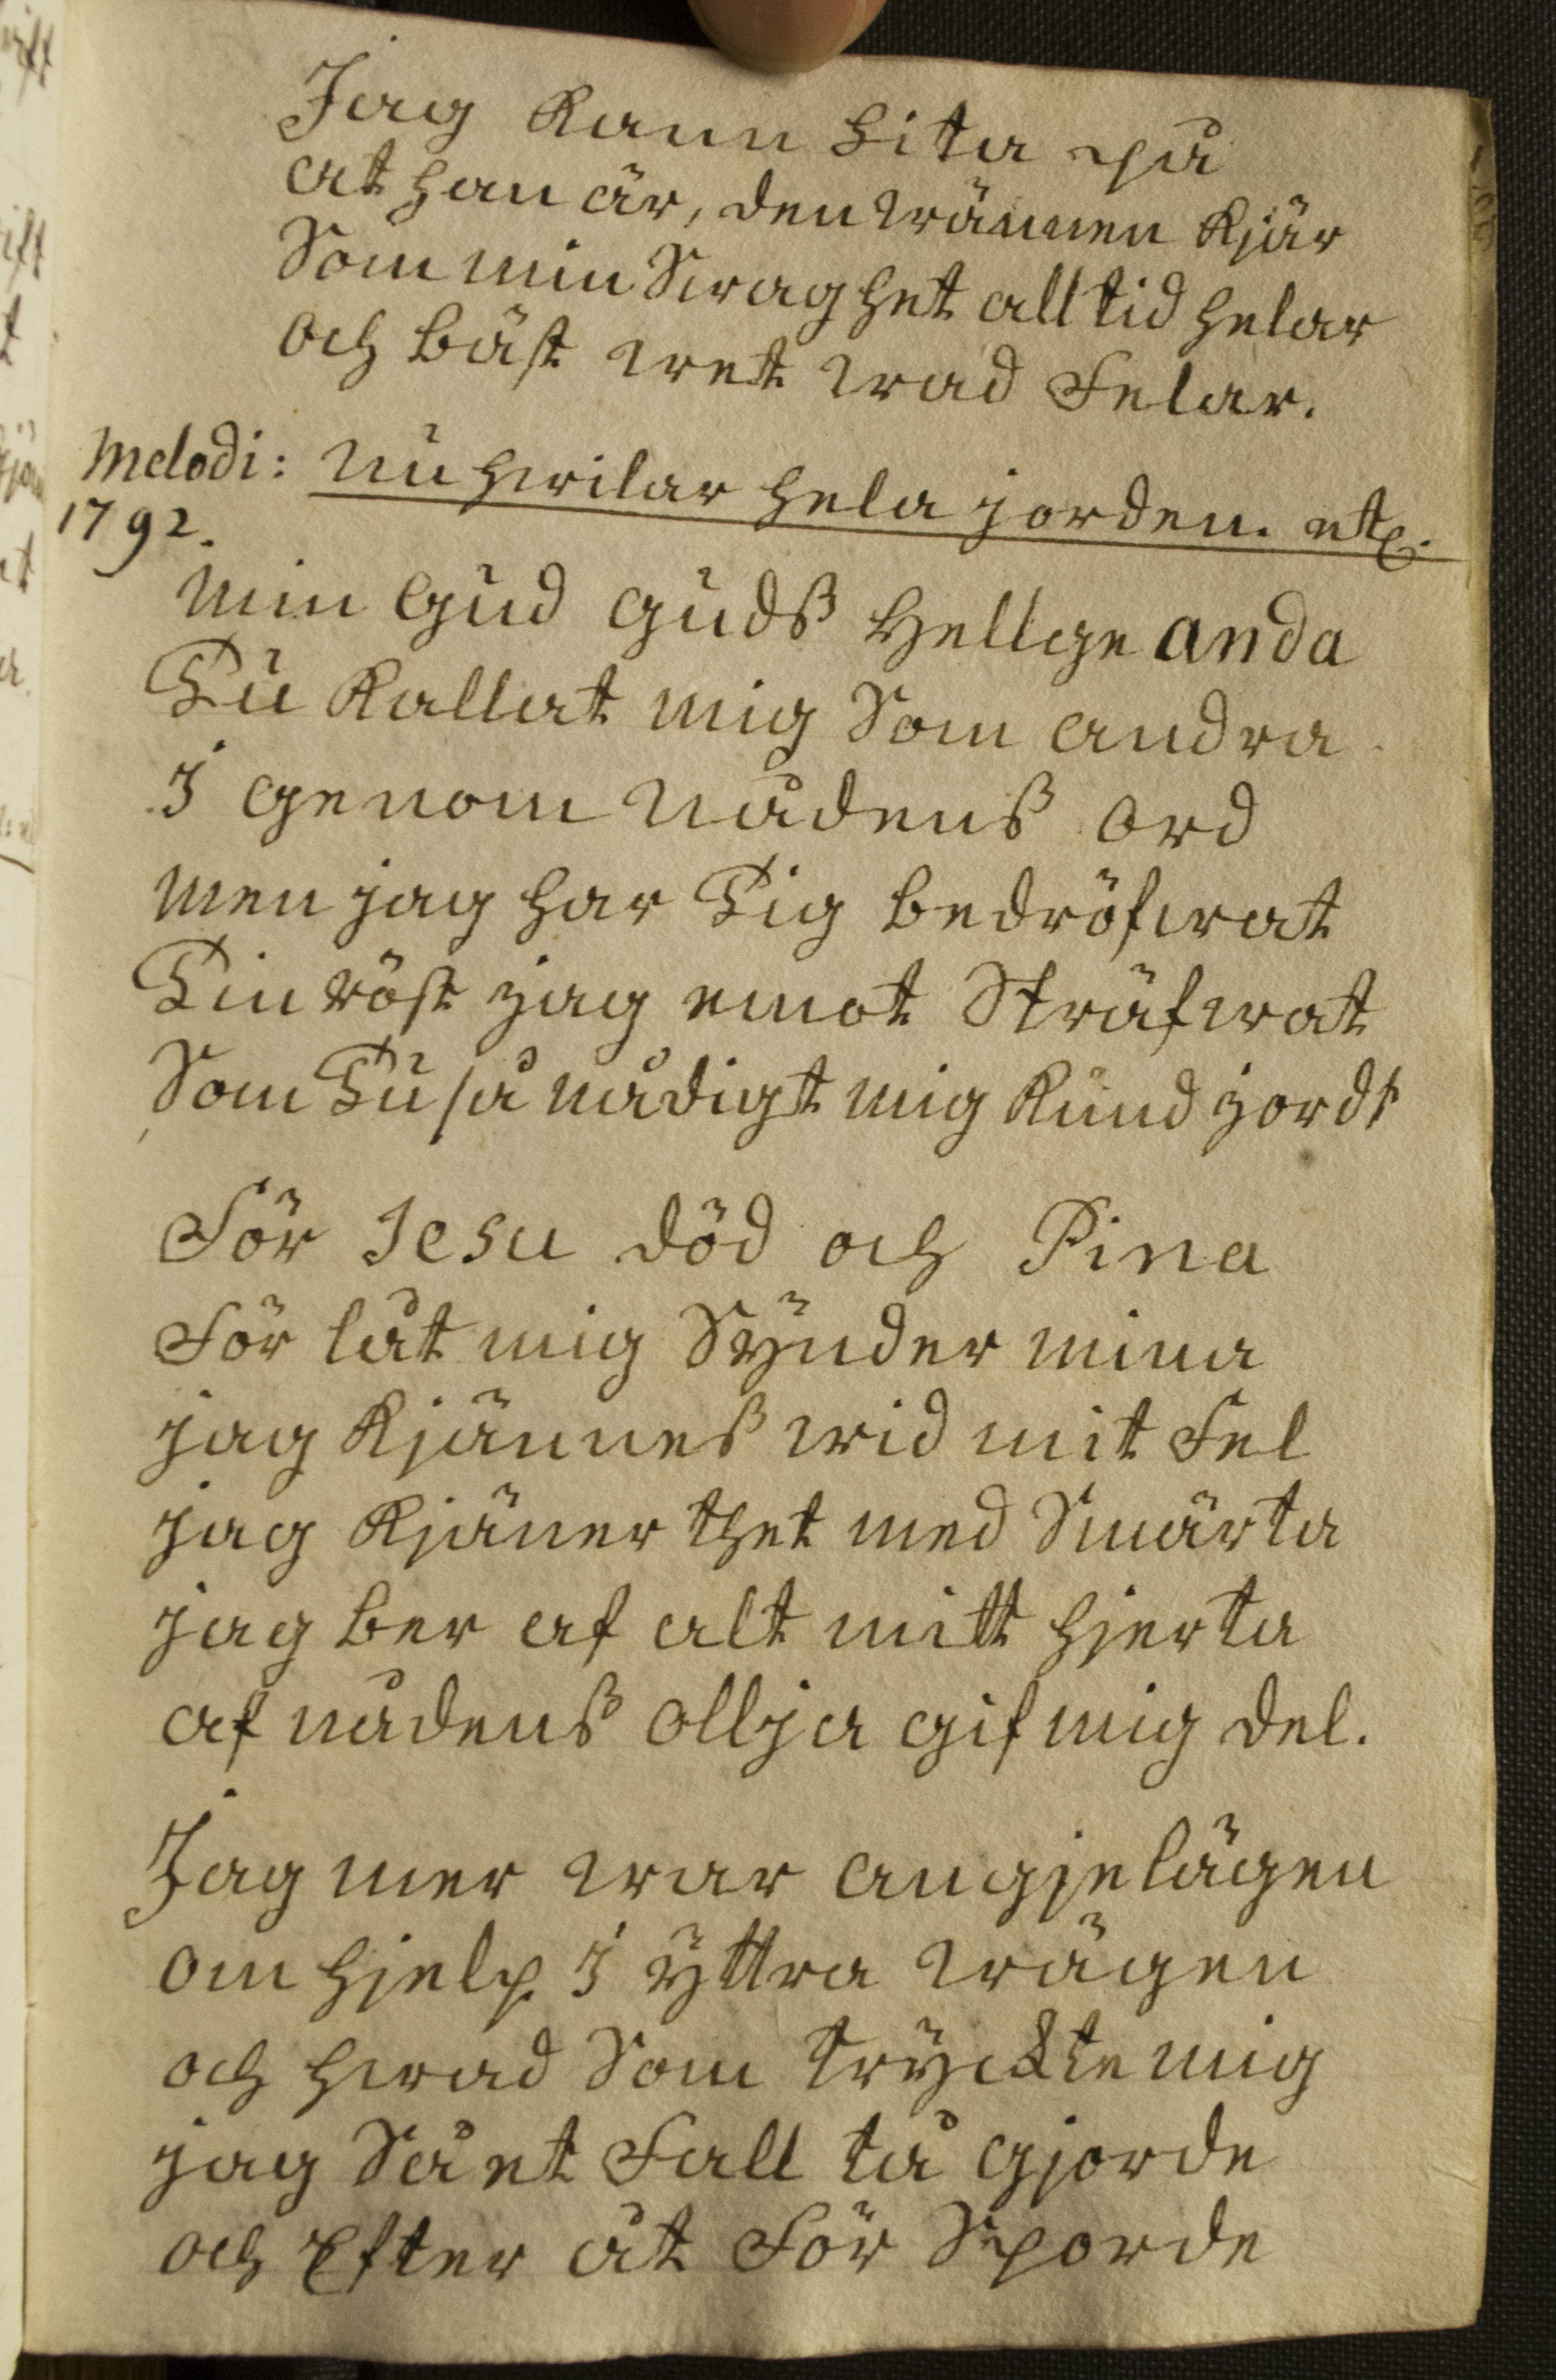 Jag kann lita på
at han är, den wännen kjär
Som min Swaghet alltid helar
och bäst wet wad Felar.
Melodi: Nu hwilar hela jorden. etc.
1792.
Min Gud Guds Hellge anda
Tu kallat mig Som andra
I genom Nådens Ord
Men jag har Tig bedröfwat
Tin röst jag emot Sträfwat
Som Tu så nådigt mig kund jordt
För Jesu död och Pina
För låt mig Synder mina
jag kjännes wid mit Fel
jag kjäner thet med Smärta
jag ber af alt mitt hjerta
af nådens Ollja gif mig del.
Jag mer war angjelägen
om hjelp I yttra wägen
och hwad Som tryckte mig
jag Så et Fall tå gjorde
och Efter åt För Sporde